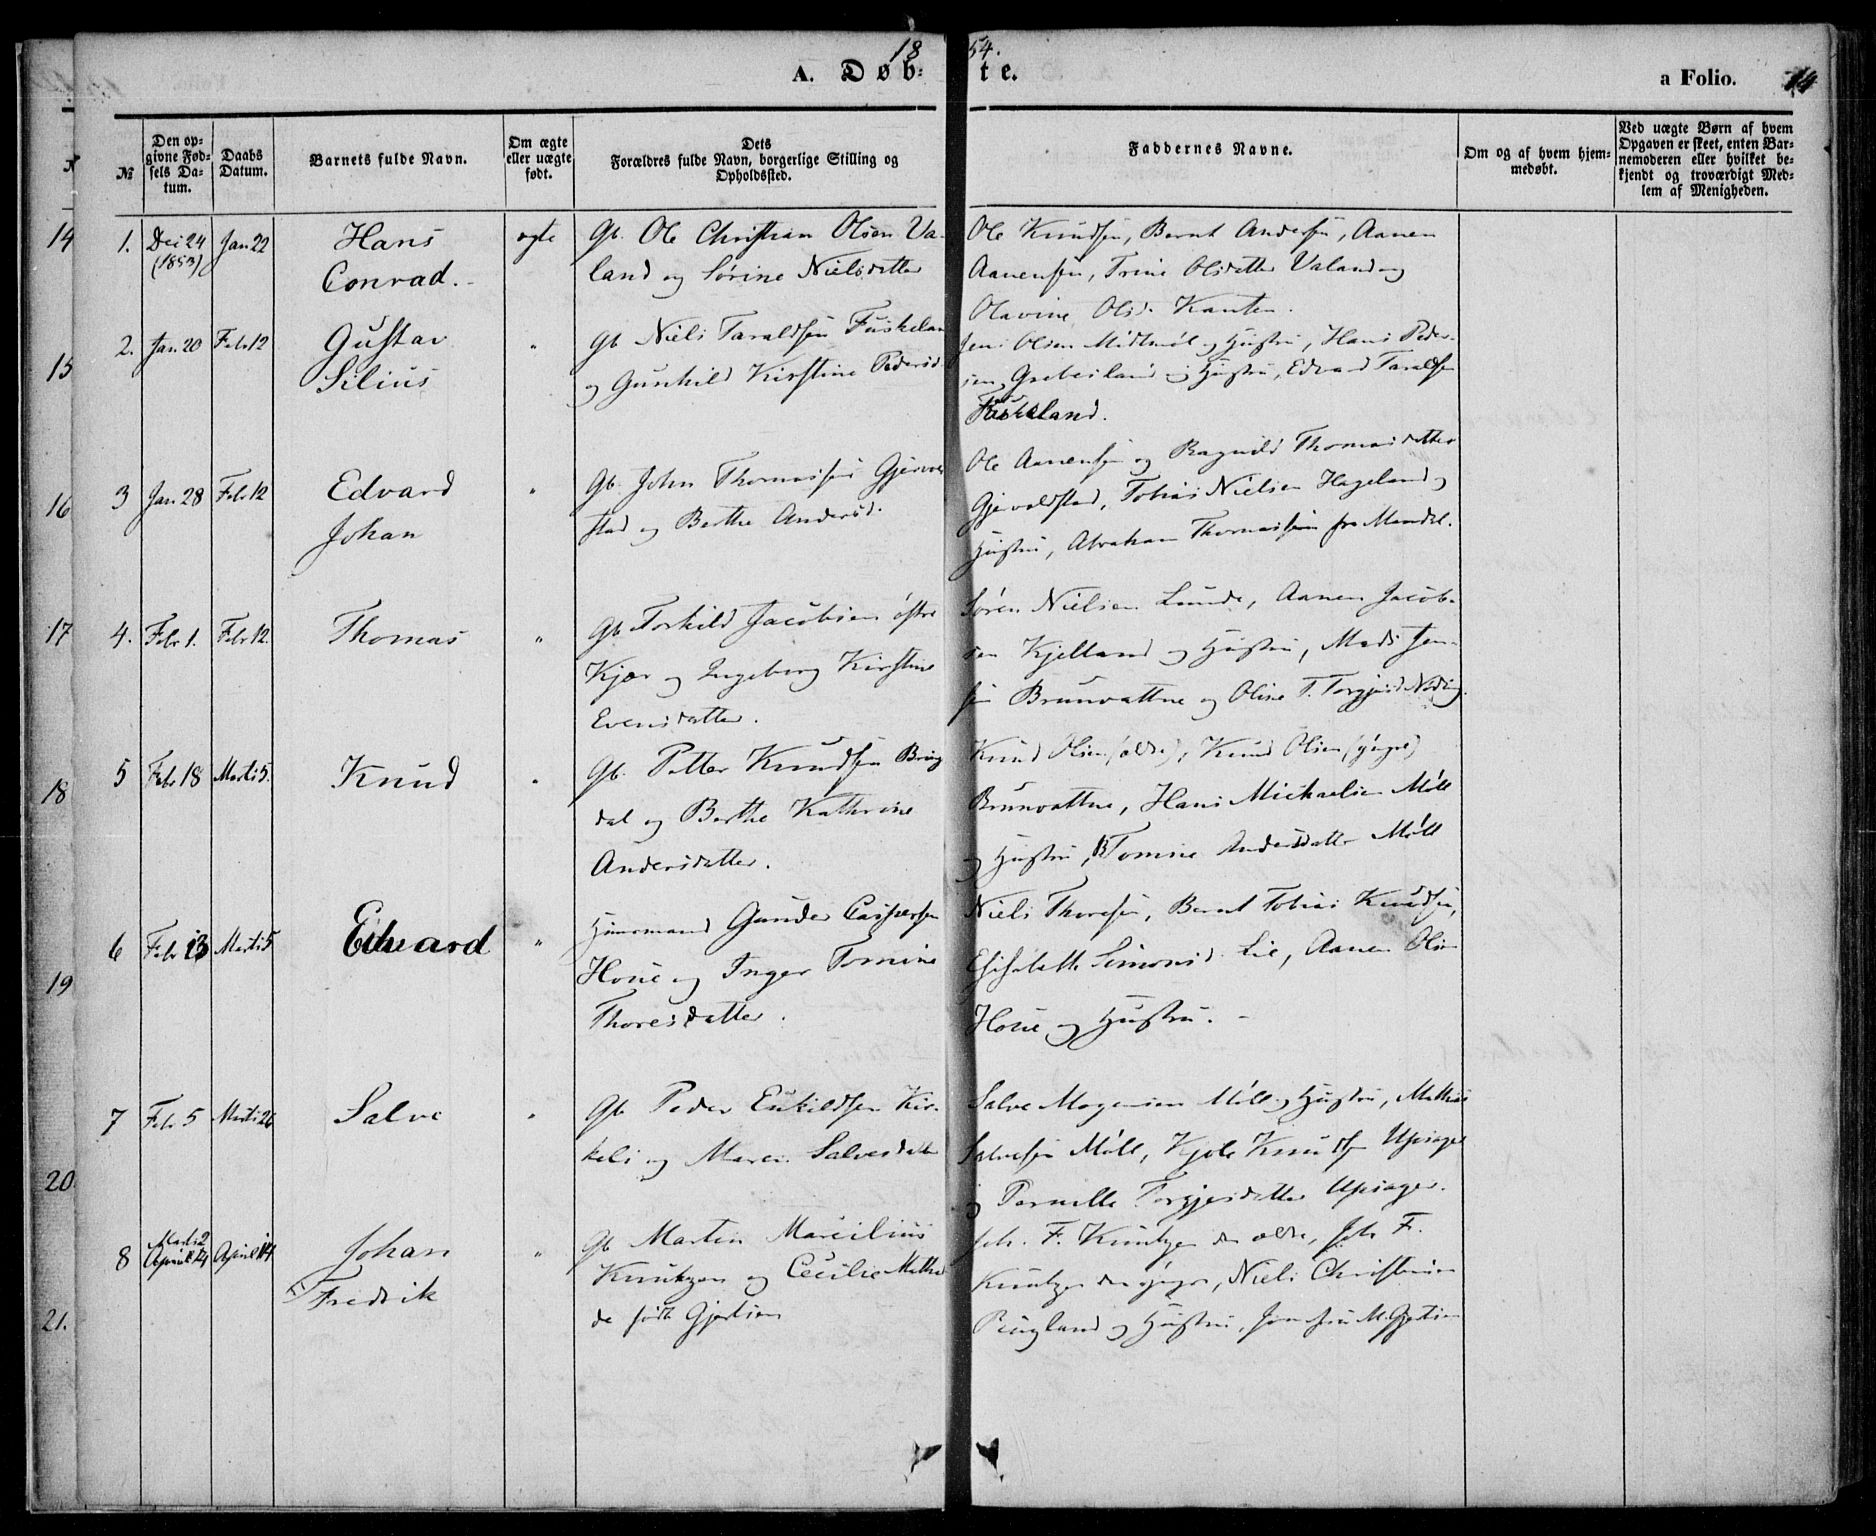 1854.
A. Døbte.
a Folio. 14
№
Den opgivne Fødsels Datum.
Daabs Datum.
Barnets fulde Navn.
Om ægte eller uægte født.
Dets Forældres fulde Navn, borgerlige Stilling og Opholdssted.
Faddernes Navne.
Om og af hvem hjemmedøbt.
Ved uægte Børn af hvem Opgaven er skeet, enten Barnemoderen eller hvilket bekjendt og troværdigt Medlem af Menigheden.
14
15
16
17
18
19
20
21.
1. Dec 24 (1853) Jan 22 Hans Conrad. ægte
Gb. Ole Christian Olsen Va-
land og Sørine Nielsdatter
Ole Knudsen, Bernt Andersen, Aanen
Aanensen, Trine Olsdatter Valand og
Olavine Olsd. Kanten.
2. Jan. 20 Febr 12 Gustav Silius "
Gb Niels Taraldsen Fuskeland
og Gunhild Kirstine Pedersd.
Jens Olsen Midtmøl og Hustru, Hans Peder-
sen Grebesland og Hustru, Edvard Taraldsen
Fuskeland.
3 Jan. 28 Febr 12 Edvard Johan "
Gb. John Thomassen Gjervold-
stad og Berthe Andersd.
Ole Aanensen og Ragnild Thomasdatter
Gjervoldstad, Tobias Nielsen Hageland og
Hustru, Abraham Thomassen fra Mandal.
4. Febr 1. Febr 12. Thomas "
Gb. Torkild Jacobsen østre
Kjær og Ingeborg Kirstine
Evensdatter.
Søren Nielsen Lunde, Aanen Jacob-
sen Kjelland og Hustru, Mads Jen-
sen Brunvattne og Oline T. Torgjusd Nøding.
5 Febr 18 Marts 5. Knud "
Gb. Petter Knudsen Bring
dal og Berthe Kathrine
Andersdatter.
Knud Olsen (ældre), Knud Olsen (yngre)
Brunvattne, Hans Michaelsen Møll
og Hustru, Tomine Andersdatter Møll
6 Febr 13 Marts 5 Edvard "
Huusmand Gunder Caspersen
Houe og Inger Tomine
Thoresdatter.
Niels Thoresen, Bernt Tobias Knudsen,
Elisabeth Simonsd. Lie, Aanen Olsen
Houe og Hustru. -
7 Febr 5 Marts 26 Salve "
Gb Peder Eskildsen Kir-
keli og Maren Salvesdatter
Salve Mogensen Møll og Hustru, Mathias
Salvesen Møll, Kjøle Knudsen Upsager
og Pernille Torgjersdatter Upsager.
8 Marts 2 April 14 April 14 Johan Fredrik "
Gb Martin Marcilius
Knutzen og Cecilie Mathil
de født Gjertsen
Joh. F. Knutzen den ældre, Joh F.
Knutzen den yngre, Niels Christensen
Ringland og Hustru, Jomfru M. Gjertsen